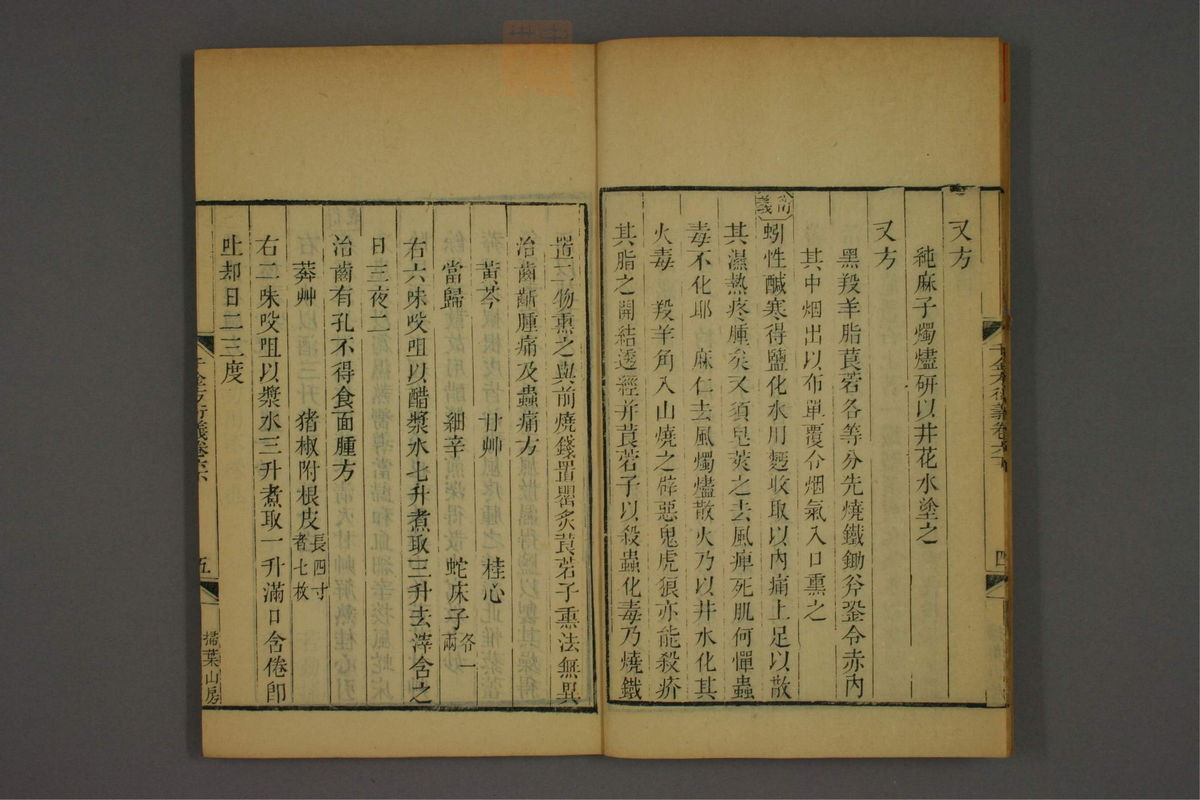 又方
純麻子燭燼研以井花水塗之
又方
黑羖羊脂莨菪各等分先燒鐵鋤斧銎令赤內
其中烟出以布單覆令烟氣入口熏之
衍義
蚓性鹹寒得鹽化水用麫收取以內痛上足以散
其濕熱疼腫矣又須皂莢之去風痺死肌何憚蟲
毒不化耶 麻仁去風燭燼散火乃以井水化其
火毒 羖羊角入山燒之辟惡鬼虎狼亦能殺疥
其脂之開結透經并莨菪子以殺蟲化毒乃燒鐵
四
置二物熏之與前燒錢置罌炙莨菪子熏法無異
治齒齗腫痛及蟲痛方
黃芩 甘艸 桂心
當歸 細辛 蛇床子各一兩
右六味㕮咀以醋漿水七升煮取三升去滓含之
日三夜二
治齒有孔不得食面腫方
莽艸 猪椒附根皮長四寸者七枚
右二味㕮咀以漿水三升煮取一升滿口含倦即
吐却日二三度
千金方衍義卷六
五
掃葉山房